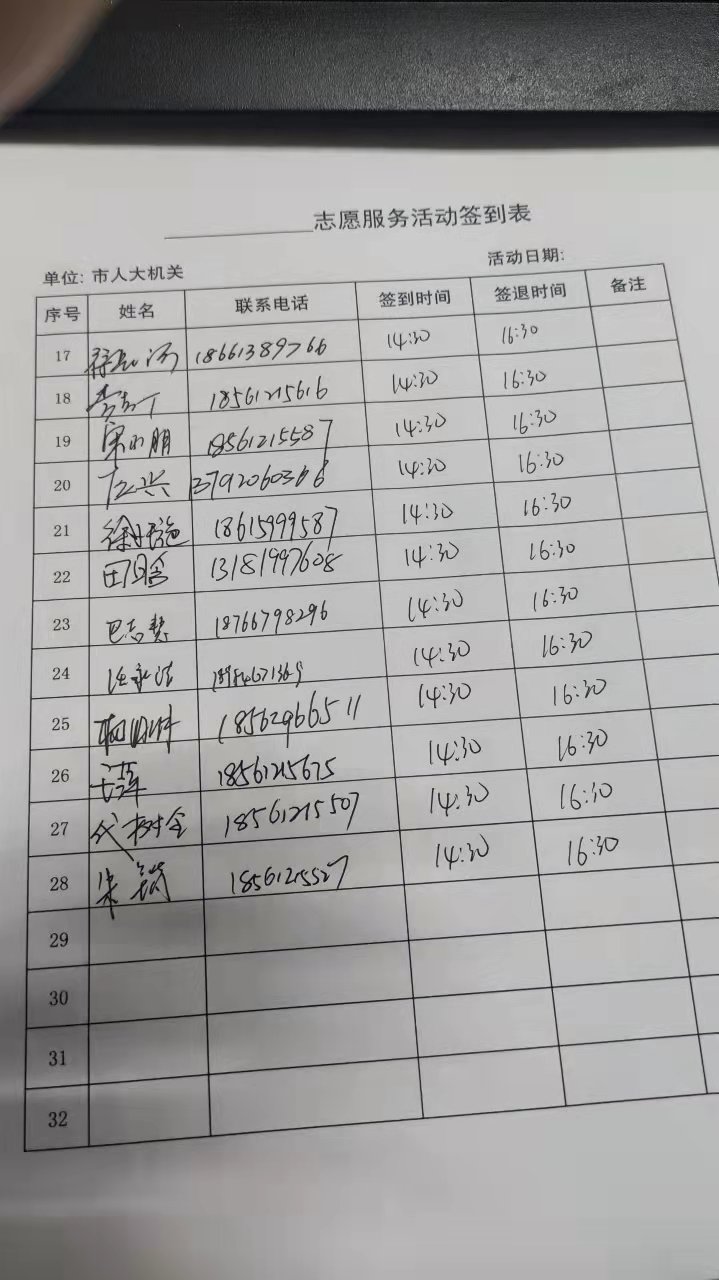 志愿服务活动签到表
单位: 市人大机关 活动日期:
序号 姓名 联系电话 签到时间 签退时间 备注
17 18661389766 14:30 16:30
18 18561215616 14:30 16:30
19 宋小朋 18561215587 14:30 16:30
20 13792060366 14:30 16:30
21 18615999587 14:30 16:30
22 13181997608 14:30 16:30
23 18766798296 14:30 16:30
24 14:30 16:30
25 18562966511 14:30 16:30
26 18561215675 14:30 16:30
27 代树全 18561215507 14:30 16:30
28 18561215527 14:30 16:30
29
30
31
32